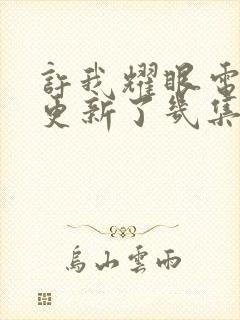 許我耀眼電
更新了幾集
烏山雲雨